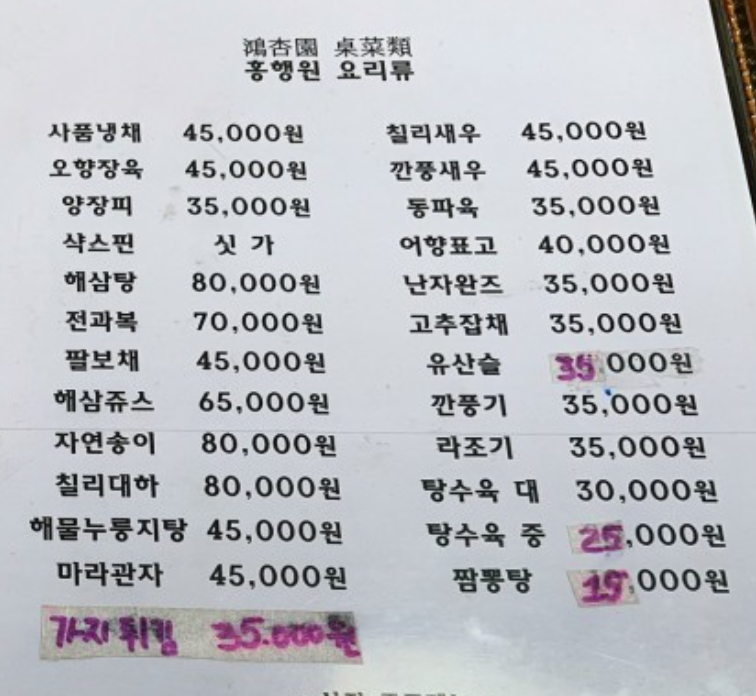 鴻杏園 桌菜類
홍행원 요리류
사품냉채 45,000원 칠리새우 45,000원
오향장육 45,000원 깐풍새우 45,000원
양장피 35,000원 동파육 35,000원
샥스핀 싯 가 어향표고 40,000원
해삼탕 80,000원 난자완즈 35,000원
전과복 70,000원 고추잡채 35,000원
팔보채 45,000원 유산슬 35,000원
해삼쥬스 65,000원 깐풍기 35,000원
자연송이 80,000원 라조기 35,000원
칠리대하 80,000원 탕수육 대 30,000원
해물누룽지탕 45,000원 탕수육 중 25,000원
마라관자 45,000원 짬뽕탕 19,000원
가지튀김 35.000원